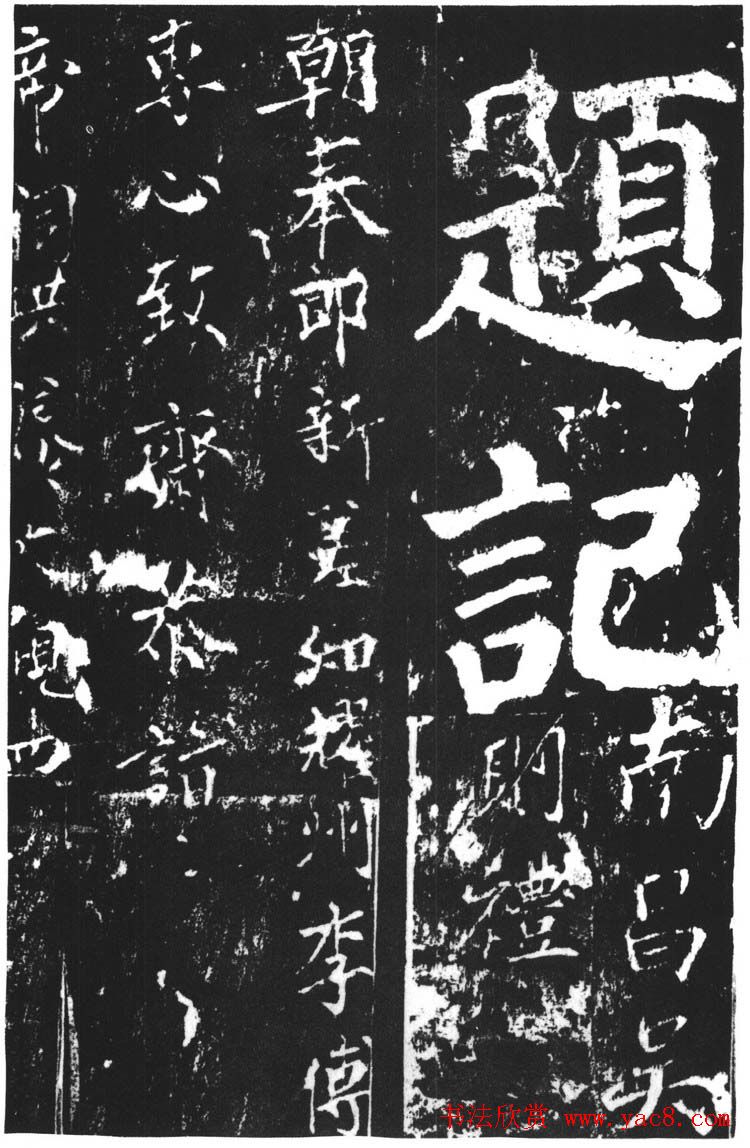 題記
南昌吴
禮
朝奉郎新差知耀州李傅
專心致齋恭詣
帝洞
四
书法欣赏 www.yac8.com